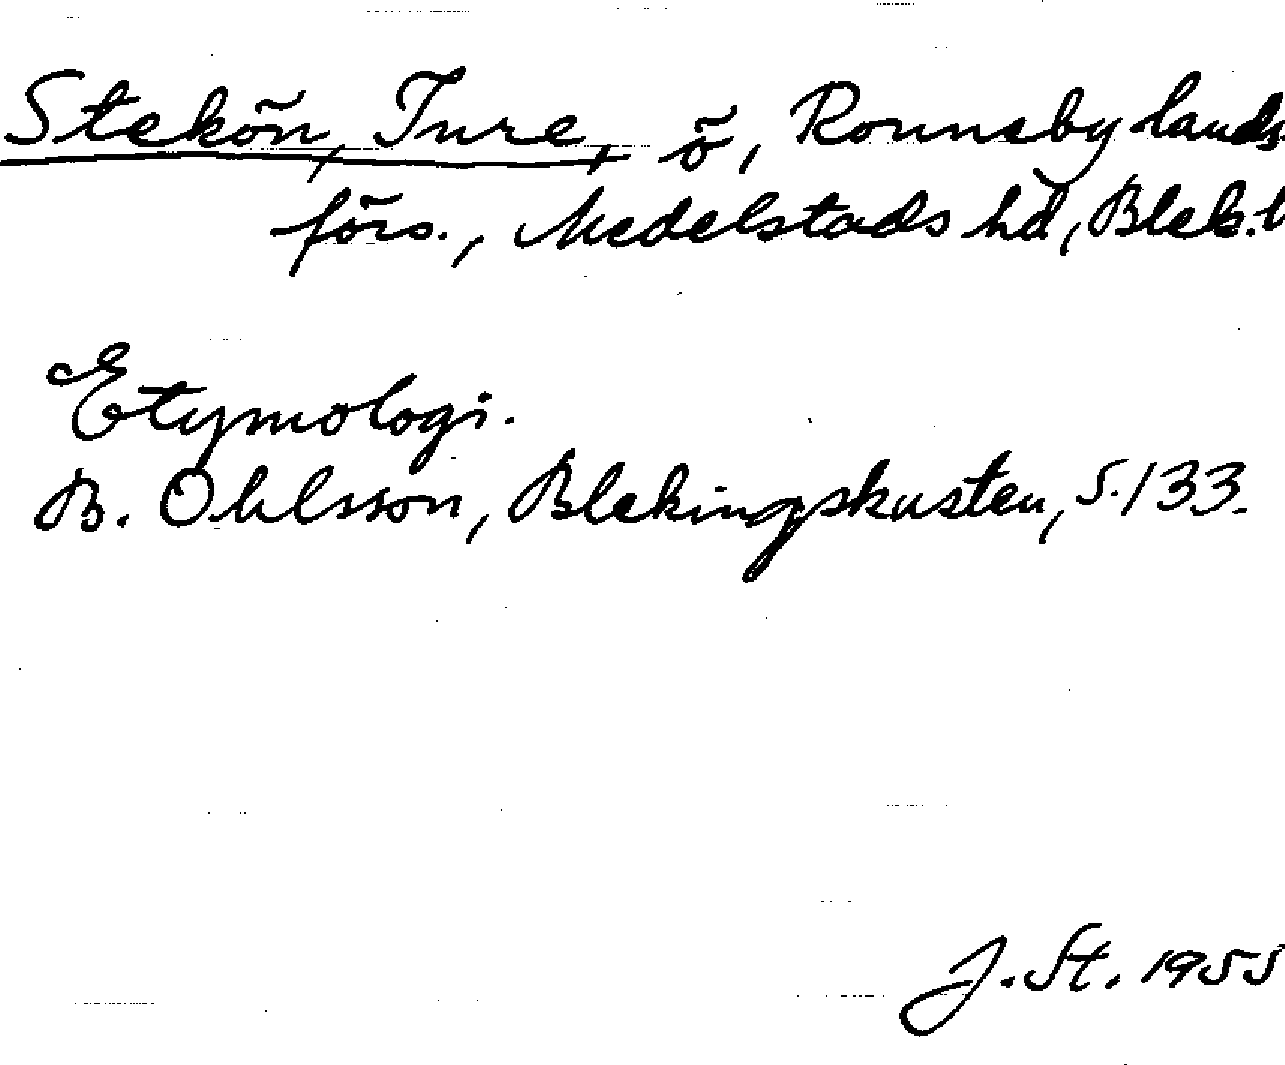 Stekön, Inre, ö, Ronneby lands
förs., Medelstads hd, Blek. l
Etymologi.
B. Ohlsson, Blekingskusten, s. 133.
J. St. 1955